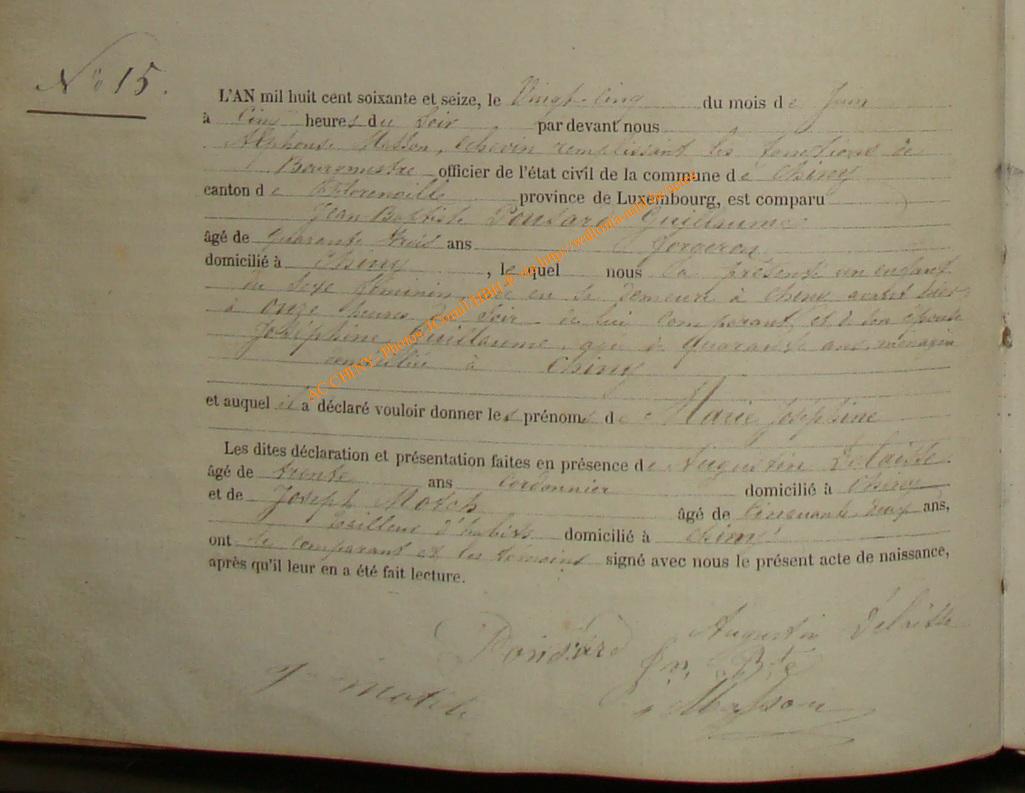 N° 15.
L'AN mil huit cent soixante et seize, le Vingt-cinq du mois de Juin
à Cinq heures du Soir par devant nous
Alphonse Masson, Echevin remplissant les fonctions de
Bourgmestre officier de l'état civil de la commune de Chiny
canton de Florenville province de Luxembourg, est comparu
Jean Baptiste Ponsard Guillaume
âgé de quarante trois ans forgeron
domicilié à Chiny, lequel nous a présenté un enfant
du sexe féminin, née en sa demeure à Chiny avant hier
à onze heures du Soir de lui comparant, et de son épouse
Joséphine Guillaume, agée de quarante ans, ménagère
domiciliée à Chiny
et auquel il a déclaré vouloir donner les prénoms de Marie Joséphine
Les dites déclaration et présentation faites en présence de Augustin Delaisse
âgé de trente ans Cordonnier domicilié à Chiny
et de Joseph Motch âgé de Cinquante deux ans,
tailleur d'habits domicilié à Chiny
ont le comparant et les temoins signé avec nous le présent acte de naissance,
après qu'il leur en a été fait lecture.
Augustin Delaisse
Ponsard Jn Bte
J Motch
A Masson